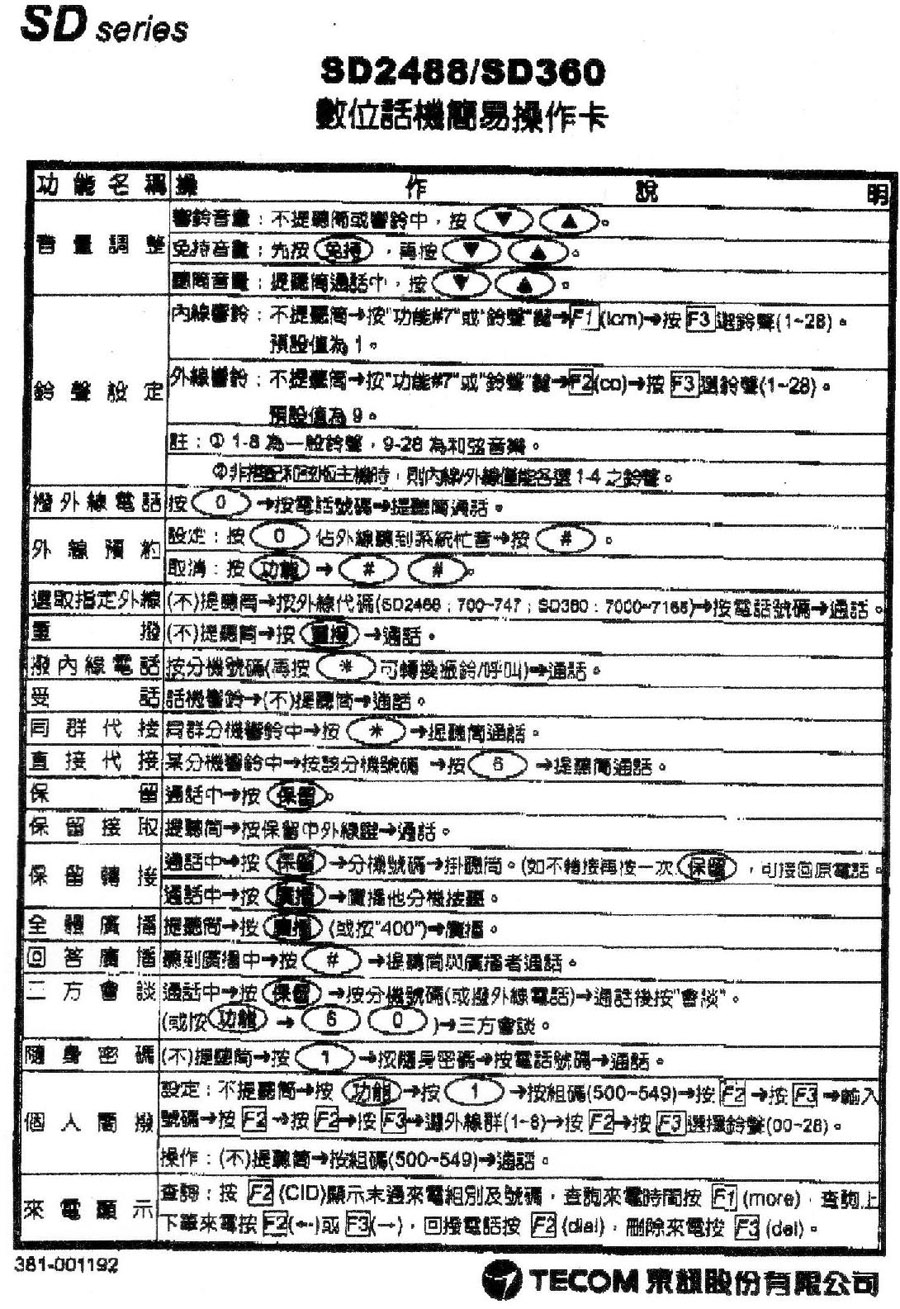 SD series
SD2488/SD360
數位話機簡易操作卡
功能名稱 操作說明
音量調整 響鈴音量：不提聽筒或響鈴中，按 ▼ ▲。
免持音量：先按 免持，再按 ▼ ▲。
聽筒音量：提聽筒通話中，按 ▼ ▲。
鈴聲設定 內線響鈴：不提聽筒→按"功能#7"或"鈴聲"鍵→F1(Icm)→按 F3 選鈴聲(1~28)。
預設值為 1。
外線響鈴：不提聽筒→按"功能#7"或"鈴聲"鍵→F2(co)→按 F3 選鈴聲(1~28)。
預設值為 9。
註：① 1-8 為一般鈴聲，9-28 為和弦音樂。
②非搭配和弦版主機時，則內線/外線僅能各選 1-4 之鈴聲。
撥外線電話 按 0 →按電話號碼→提聽筒通話。
外線預約 設定：按 0 佔外線聽到系統忙音→按 #。
取消：按 功能 → # #。
選取指定外線 (不)提聽筒→按外線代碼(SD2488：700~747；SD360：7000~7165)→按電話號碼→通話。
重撥 (不)提聽筒→按 重撥 →通話。
撥內線電話 按分機號碼(再按 * 可轉換振鈴/呼叫)→通話。
受話 話機響鈴→(不)提聽筒→通話。
同群代接 同群分機響鈴中→按 * →提聽筒通話。
直接代接 某分機響鈴中→按該分機號碼 →按 6 →提聽筒通話。
保留 通話中→按 保留。
保留接取 提聽筒→按保留中外線鍵→通話。
保留轉接 通話中→按 保留 →分機號碼→掛聽筒。(如不轉接再按一次 保留，可接回原電話。
通話中→按 廣播 →廣播他分機按聽。
全體廣播 提聽筒→按 廣播 (或按"400")→廣播。
回答廣播 聽到廣播中→按 # →提聽筒與廣播者通話。
三方會談 通話中→按 保留 →按分機號碼(或撥外線電話)→通話後按"會談"。
(或按 功能 → 6 0 )→三方會談。
隨身密碼 (不)提聽筒→按 1 →按隨身密碼→按電話號碼→通話。
個人簡撥 設定：不提聽筒→按 功能→按 1 →按組碼(500~549)→按 F2 →按 F3 →輸入
號碼→按 F2 →按 F2→按 F3→選外線群(1~8)→按 F2→按 F3 選擇鈴聲(00~28)。
操作：(不)提聽筒→按組碼(500~549)→通話。
來電顯示 查詢：按 F2 (CID)顯示末通來電組別及號碼，查詢來電時間按 F1 (more)，查詢上
下筆來電按 F2(←)或 F3(→)，回撥電話按 F2 (dial)，刪除來電按 F3 (del)。
381-001192
TECOM 東訊股份有限公司